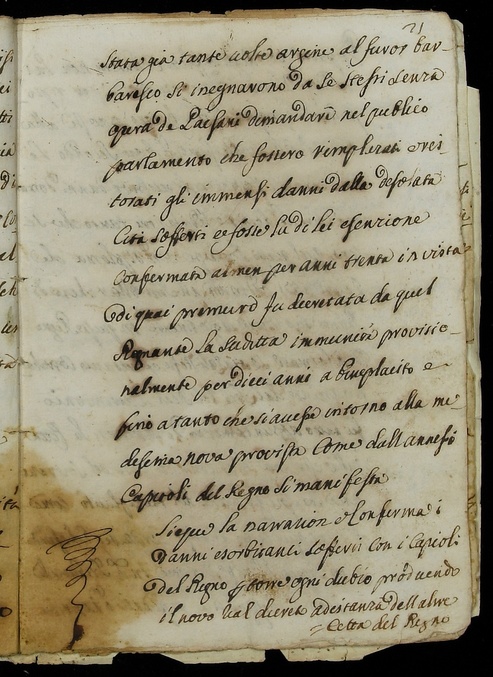 21
stata già tante volte argine al furor bar-
baresco si ingegnarono da se stessi senza
opera de Paesani dimandare nel publico
parlamento che fossero rimplerati e ris-
torati gli immensi danni dalla desolata
Cità sofferti e fosse la di lei esenzione
Confermata almen per anni trenta in vista
di quai premure fu decretata da quel
Regnante la sudetta immunità provisio-
nalmente per dieci anni a beneplacito e
fino a tanto che si avesse intorno alla me-
desema nova provista come dall'annessi
Capitoli del Regno si manifesta
Siegue la narration e Conferma i
danni esorbitanti sofferti con i Capitoli
del Regno torre ogni dubio producendo
il novo Real decreto ad istanza dell'altre
Cetta del Regno